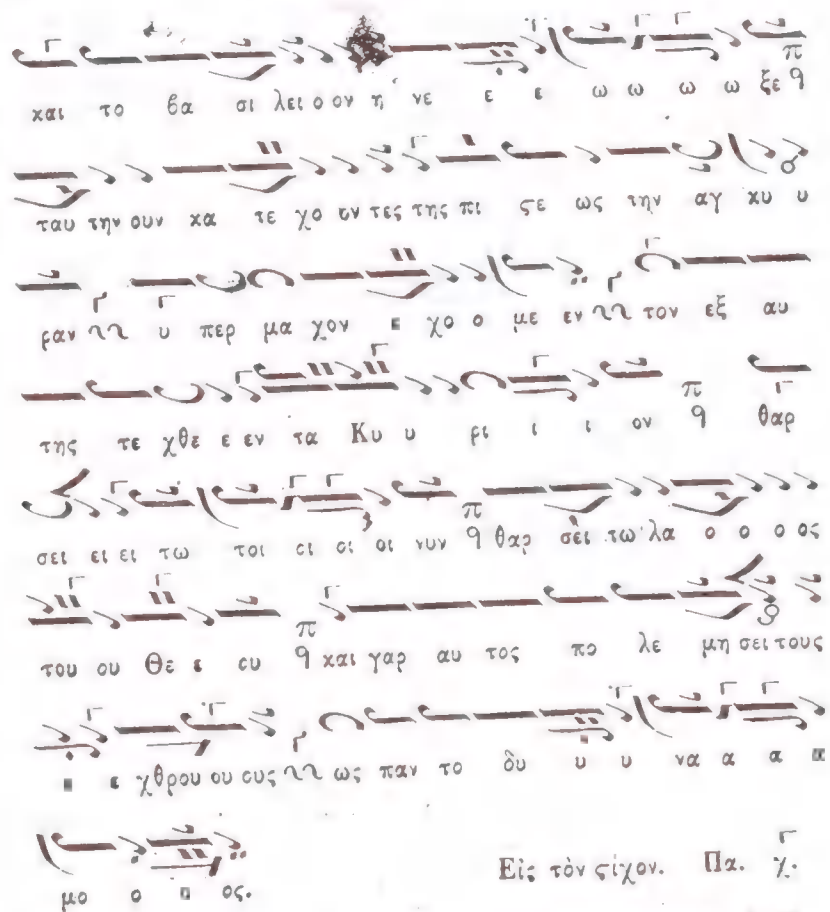 και το βα σι λει ο ον η νε ε ε ω ω ω ω ξε π q
ταυ την ουν κα τε χο ον τες της πι ϛε ως την αγ κυ υ
ραν υ περ μα χον ε χο ο με εν τον εξ αυ
της τε χθε ε εν τα Κυ υ ρι ι ι ον π q θαρ
σει ει ει τω τοι οι οι οι νυν π q θαρ σει τω λα ο ο ο ος
του ου Θε ε ου π q και γαρ αυ τος πο λε μη σει τους
ε χθρου ου ους ως παν το δυ υ υ να α α α
μο ο ος.
Εἰς τὸν ϛίχον. Πα. χ.